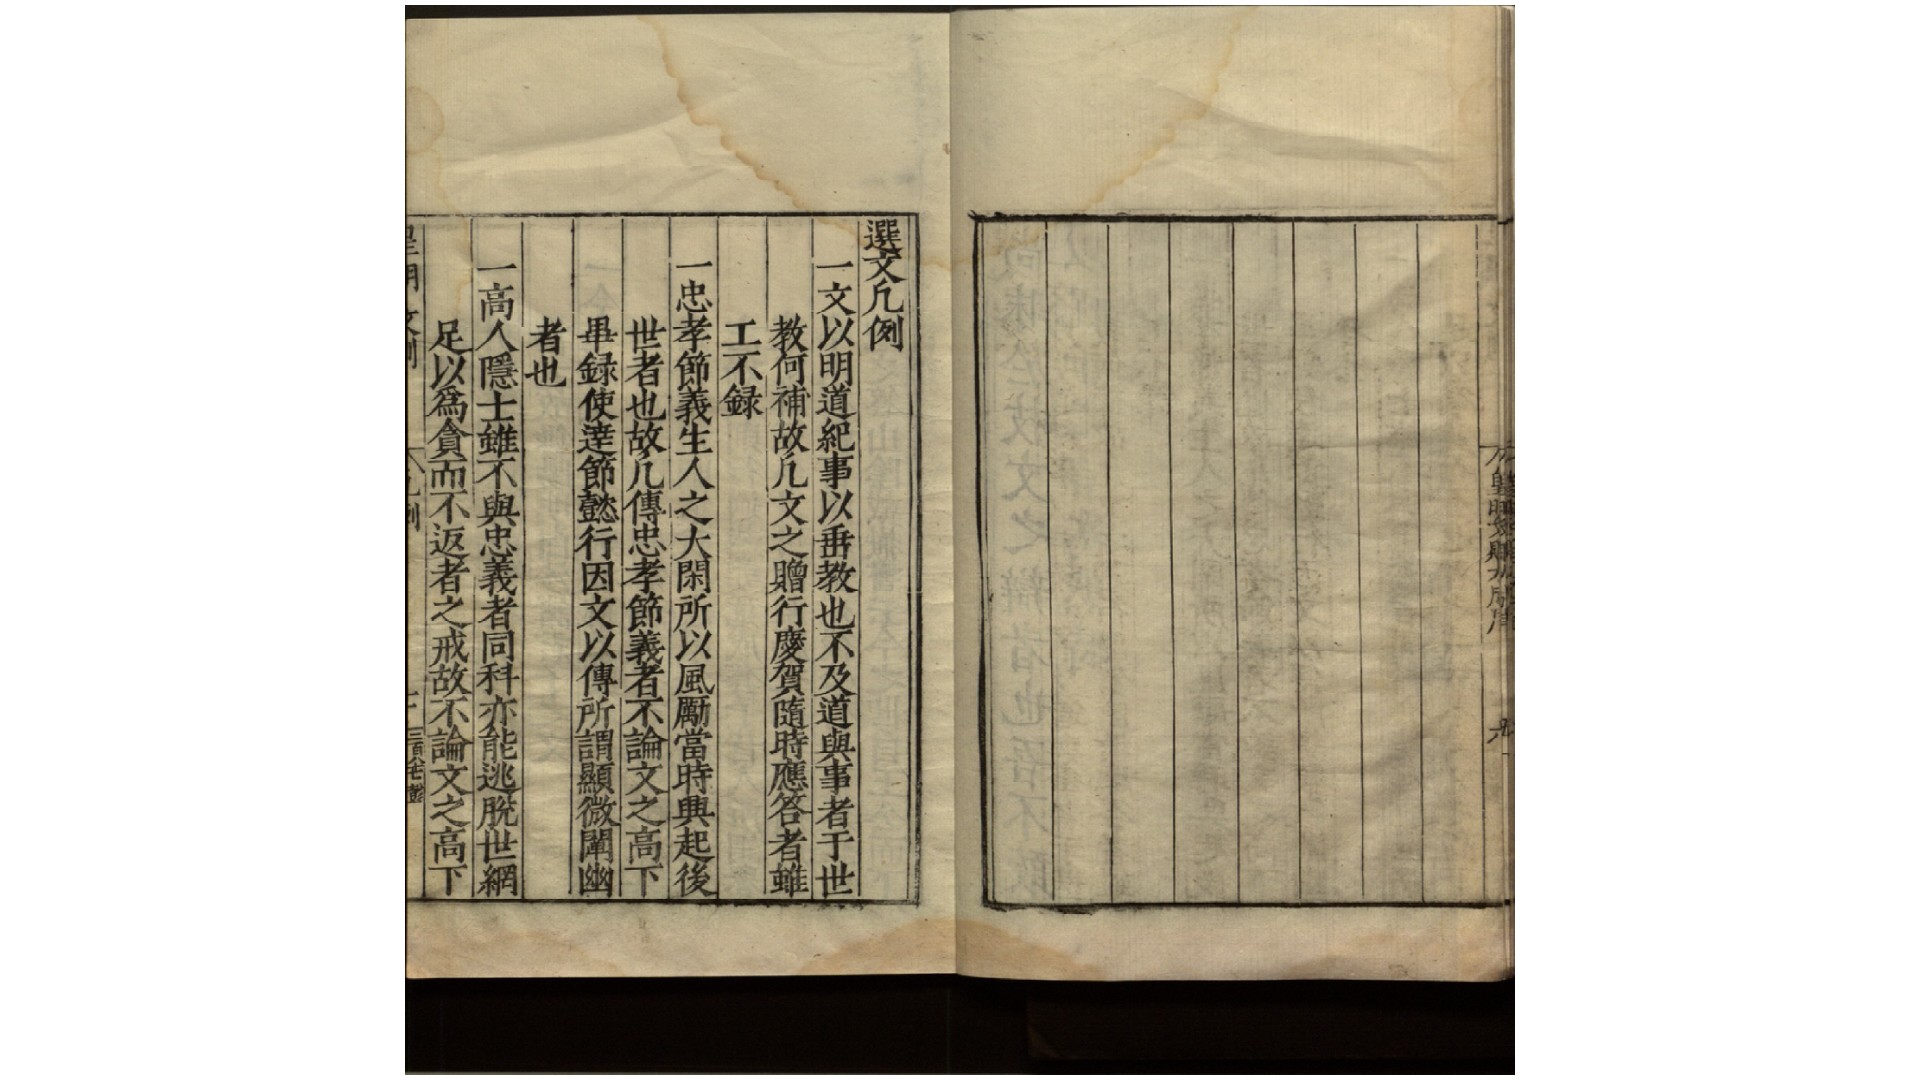 選文凡例
一文以明道紀事以垂教也不及道與事者于世
教何補故凡文之贈行慶賀隨時應答者雖
工不録
一忠孝節義生人之大閑所以風勵當時興起後
世者也故凡傳忠孝節義者不論文之高下
畢録使達節懿行因文以傳所謂顯微闡幽
者也
一高人隱士雖不與忠義者同科亦能逃脫世網
足以爲貪而不返者之戒故不論文之高下